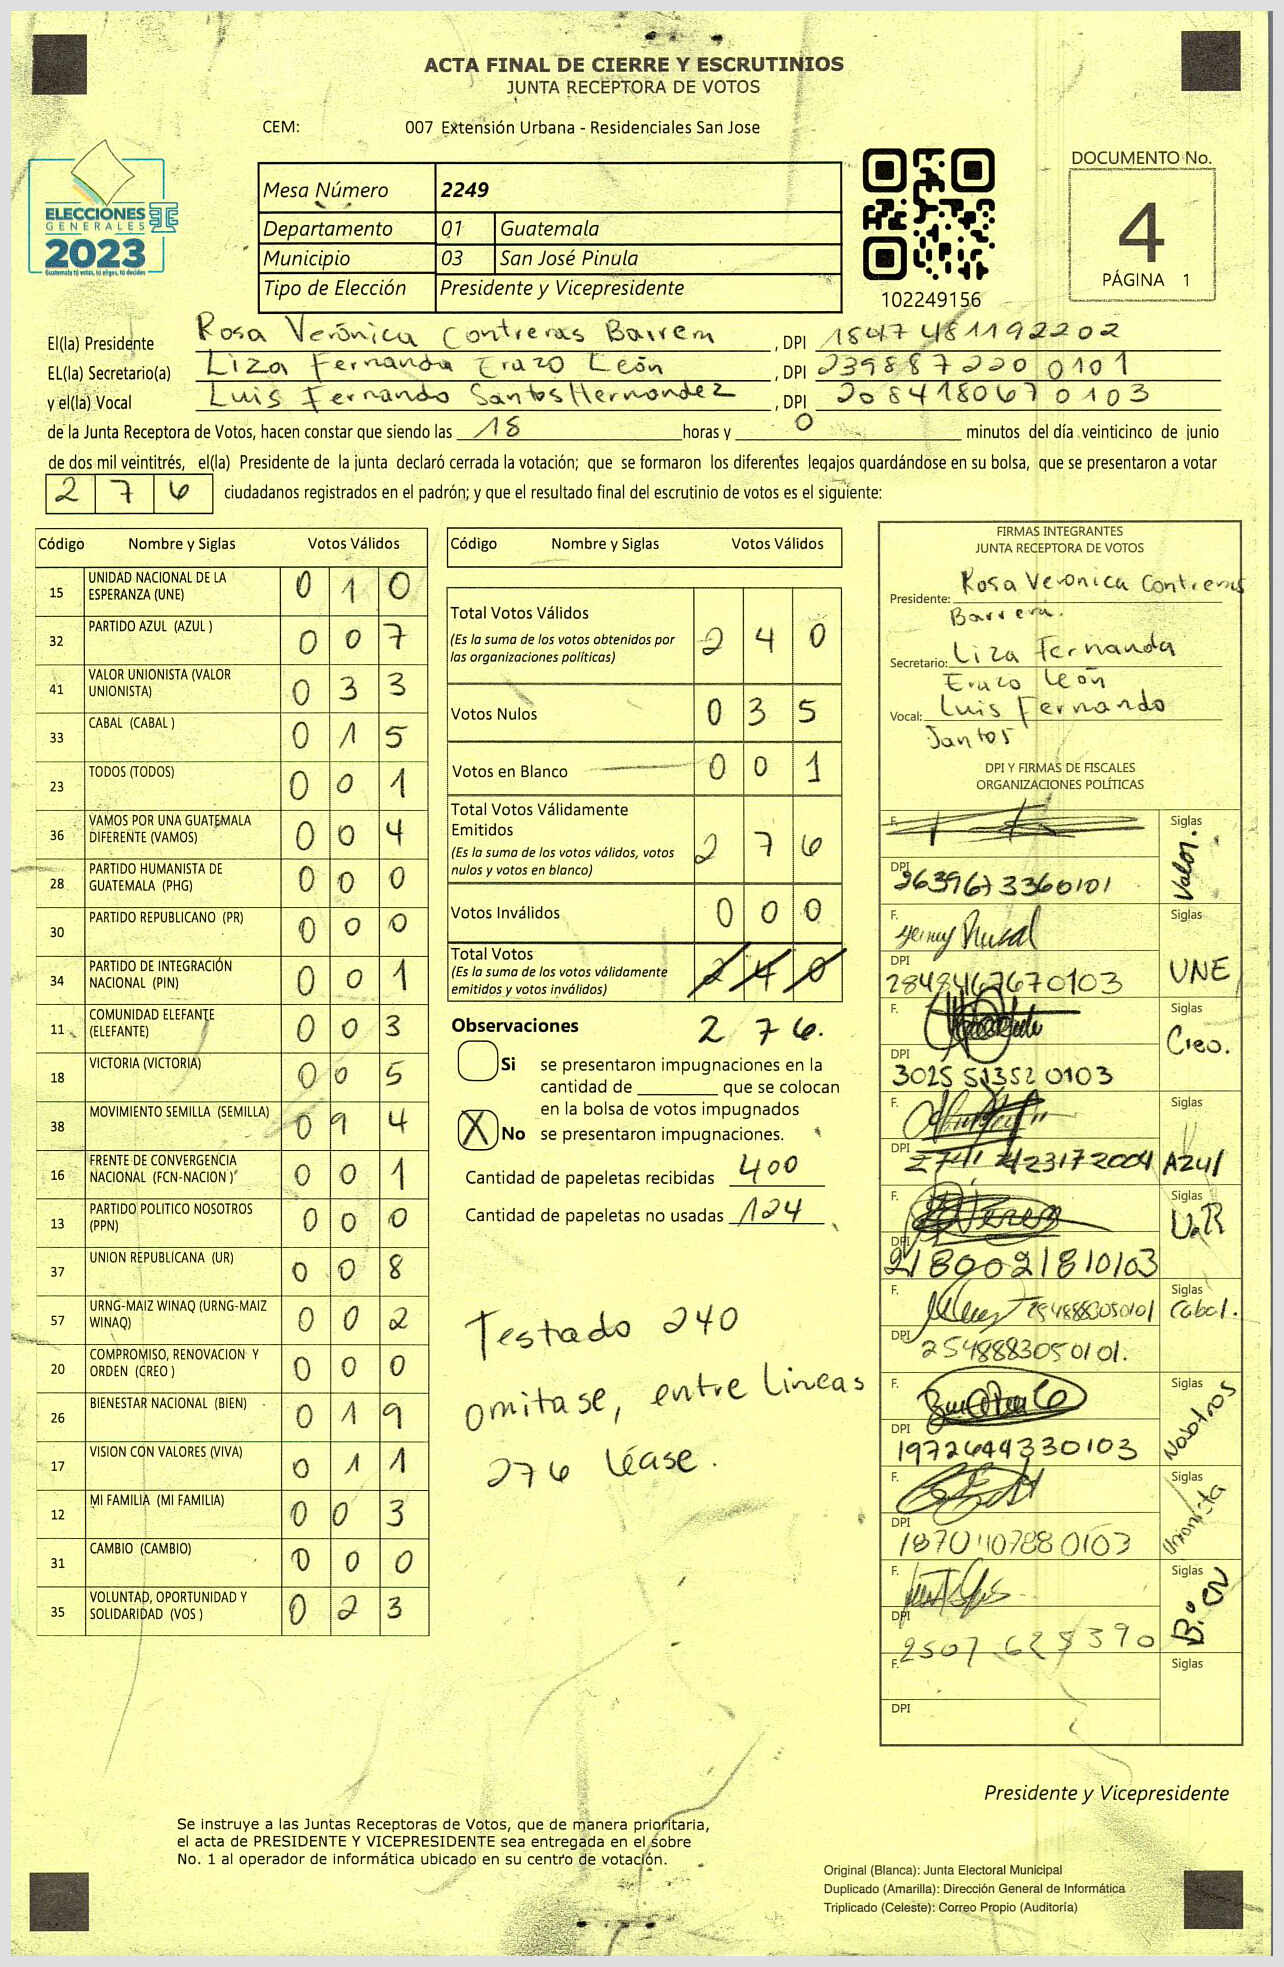 ACTA FINAL DE CIERRE Y ESCRUTINIOS
JUNTA RECEPTORA DE VOTOS
CEM: 007 Extensión Urbana - Residenciales San Jose
ELECCIONES
GENERALES
2023
Guatemala tú votas, tú eliges, tú decides
Mesa Número 2249
Departamento 01 Guatemala
Municipio 03 San José Pinula
Tipo de Elección Presidente y Vicepresidente
102249156
DOCUMENTO No.
4
PÁGINA 1
El(la) Presidente Rosa Verónica Contreras Barrera, DPI 1847481192202
EL(la) Secretario(a) Liza Fernanda Erazo León, DPI 2398872200101
y el(la) Vocal Luis Fernando Santos Hernandez, DPI 2084180670103
de la Junta Receptora de Votos, hacen constar que siendo las 18 horas y 0 minutos del día veinticinco de junio
de dos mil veintitrés, el(la) Presidente de la junta declaró cerrada la votación; que se formaron los diferentes legajos guardándose en su bolsa, que se presentaron a votar
276 ciudadanos registrados en el padrón; y que el resultado final del escrutinio de votos es el siguiente:
Código Nombre y Siglas Votos Válidos
15 UNIDAD NACIONAL DE LA ESPERANZA (UNE) 010
32 PARTIDO AZUL (AZUL ) 007
41 VALOR UNIONISTA (VALOR UNIONISTA) 033
33 CABAL (CABAL ) 015
23 TODOS (TODOS) 001
36 VAMOS POR UNA GUATEMALA DIFERENTE (VAMOS) 004
28 PARTIDO HUMANISTA DE GUATEMALA (PHG) 000
30 PARTIDO REPUBLICANO (PR) 000
34 PARTIDO DE INTEGRACIÓN NACIONAL (PIN) 001
11 COMUNIDAD ELEFANTE (ELEFANTE) 003
18 VICTORIA (VICTORIA) 005
38 MOVIMIENTO SEMILLA (SEMILLA) 094
16 FRENTE DE CONVERGENCIA NACIONAL (FCN-NACION ) 001
13 PARTIDO POLITICO NOSOTROS (PPN) 000
37 UNION REPUBLICANA (UR) 008
57 URNG-MAIZ WINAQ (URNG-MAIZ WINAQ) 002
20 COMPROMISO, RENOVACION Y ORDEN (CREO ) 000
26 BIENESTAR NACIONAL (BIEN) 019
17 VISION CON VALORES (VIVA) 011
12 MI FAMILIA (MI FAMILIA) 003
31 CAMBIO (CAMBIO) 000
35 VOLUNTAD, OPORTUNIDAD Y SOLIDARIDAD (VOS ) 023
Código Nombre y Siglas Votos Válidos
Total Votos Válidos 240
(Es la suma de los votos obtenidos por
las organizaciones políticas)
Votos Nulos 035
Votos en Blanco 001
Total Votos Válidamente
Emitidos 276
(Es la suma de los votos válidos, votos
nulos y votos en blanco)
Votos Inválidos 000
Total Votos 240
(Es la suma de los votos válidamente
emitidos y votos inválidos)
276.
Observaciones
Si se presentaron impugnaciones en la
cantidad de ________ que se colocan
en la bolsa de votos impugnados
X No se presentaron impugnaciones.
Cantidad de papeletas recibidas 400
Cantidad de papeletas no usadas 124
Testado 240
omitase, entre Lineas
276 léase.
FIRMAS INTEGRANTES
JUNTA RECEPTORA DE VOTOS
Presidente: Rosa Veronica Contreras
Barrera.
Secretario: Liza Fernanda
Erazo León
Vocal: Luis Fernando
Santos
DPI Y FIRMAS DE FISCALES
ORGANIZACIONES POLÍTICAS
F. Siglas Valor.
DPI 2639673360101
F. Siglas UNE
DPI 2848467670103
F. Siglas Creo.
DPI 3025513520103
F. Siglas Azul
DPI
F. Siglas U.R
DPI 2180021810103
F. 2548883050101 Siglas Cabal.
DPI 2548883050101.
F. Siglas Nosotros
DPI 1972644330103
F. Siglas Unionista
DPI 1870407880103
F. Siglas Bien
DPI 2507 628390
F. Siglas
DPI
Presidente y Vicepresidente
Se instruye a las Juntas Receptoras de Votos, que de manera prioritaria,
el acta de PRESIDENTE Y VICEPRESIDENTE sea entregada en el sobre
No. 1 al operador de informática ubicado en su centro de votación.
Original (Blanca): Junta Electoral Municipal
Duplicado (Amarilla): Dirección General de Informática
Triplicado (Celeste): Correo Propio (Auditoría)